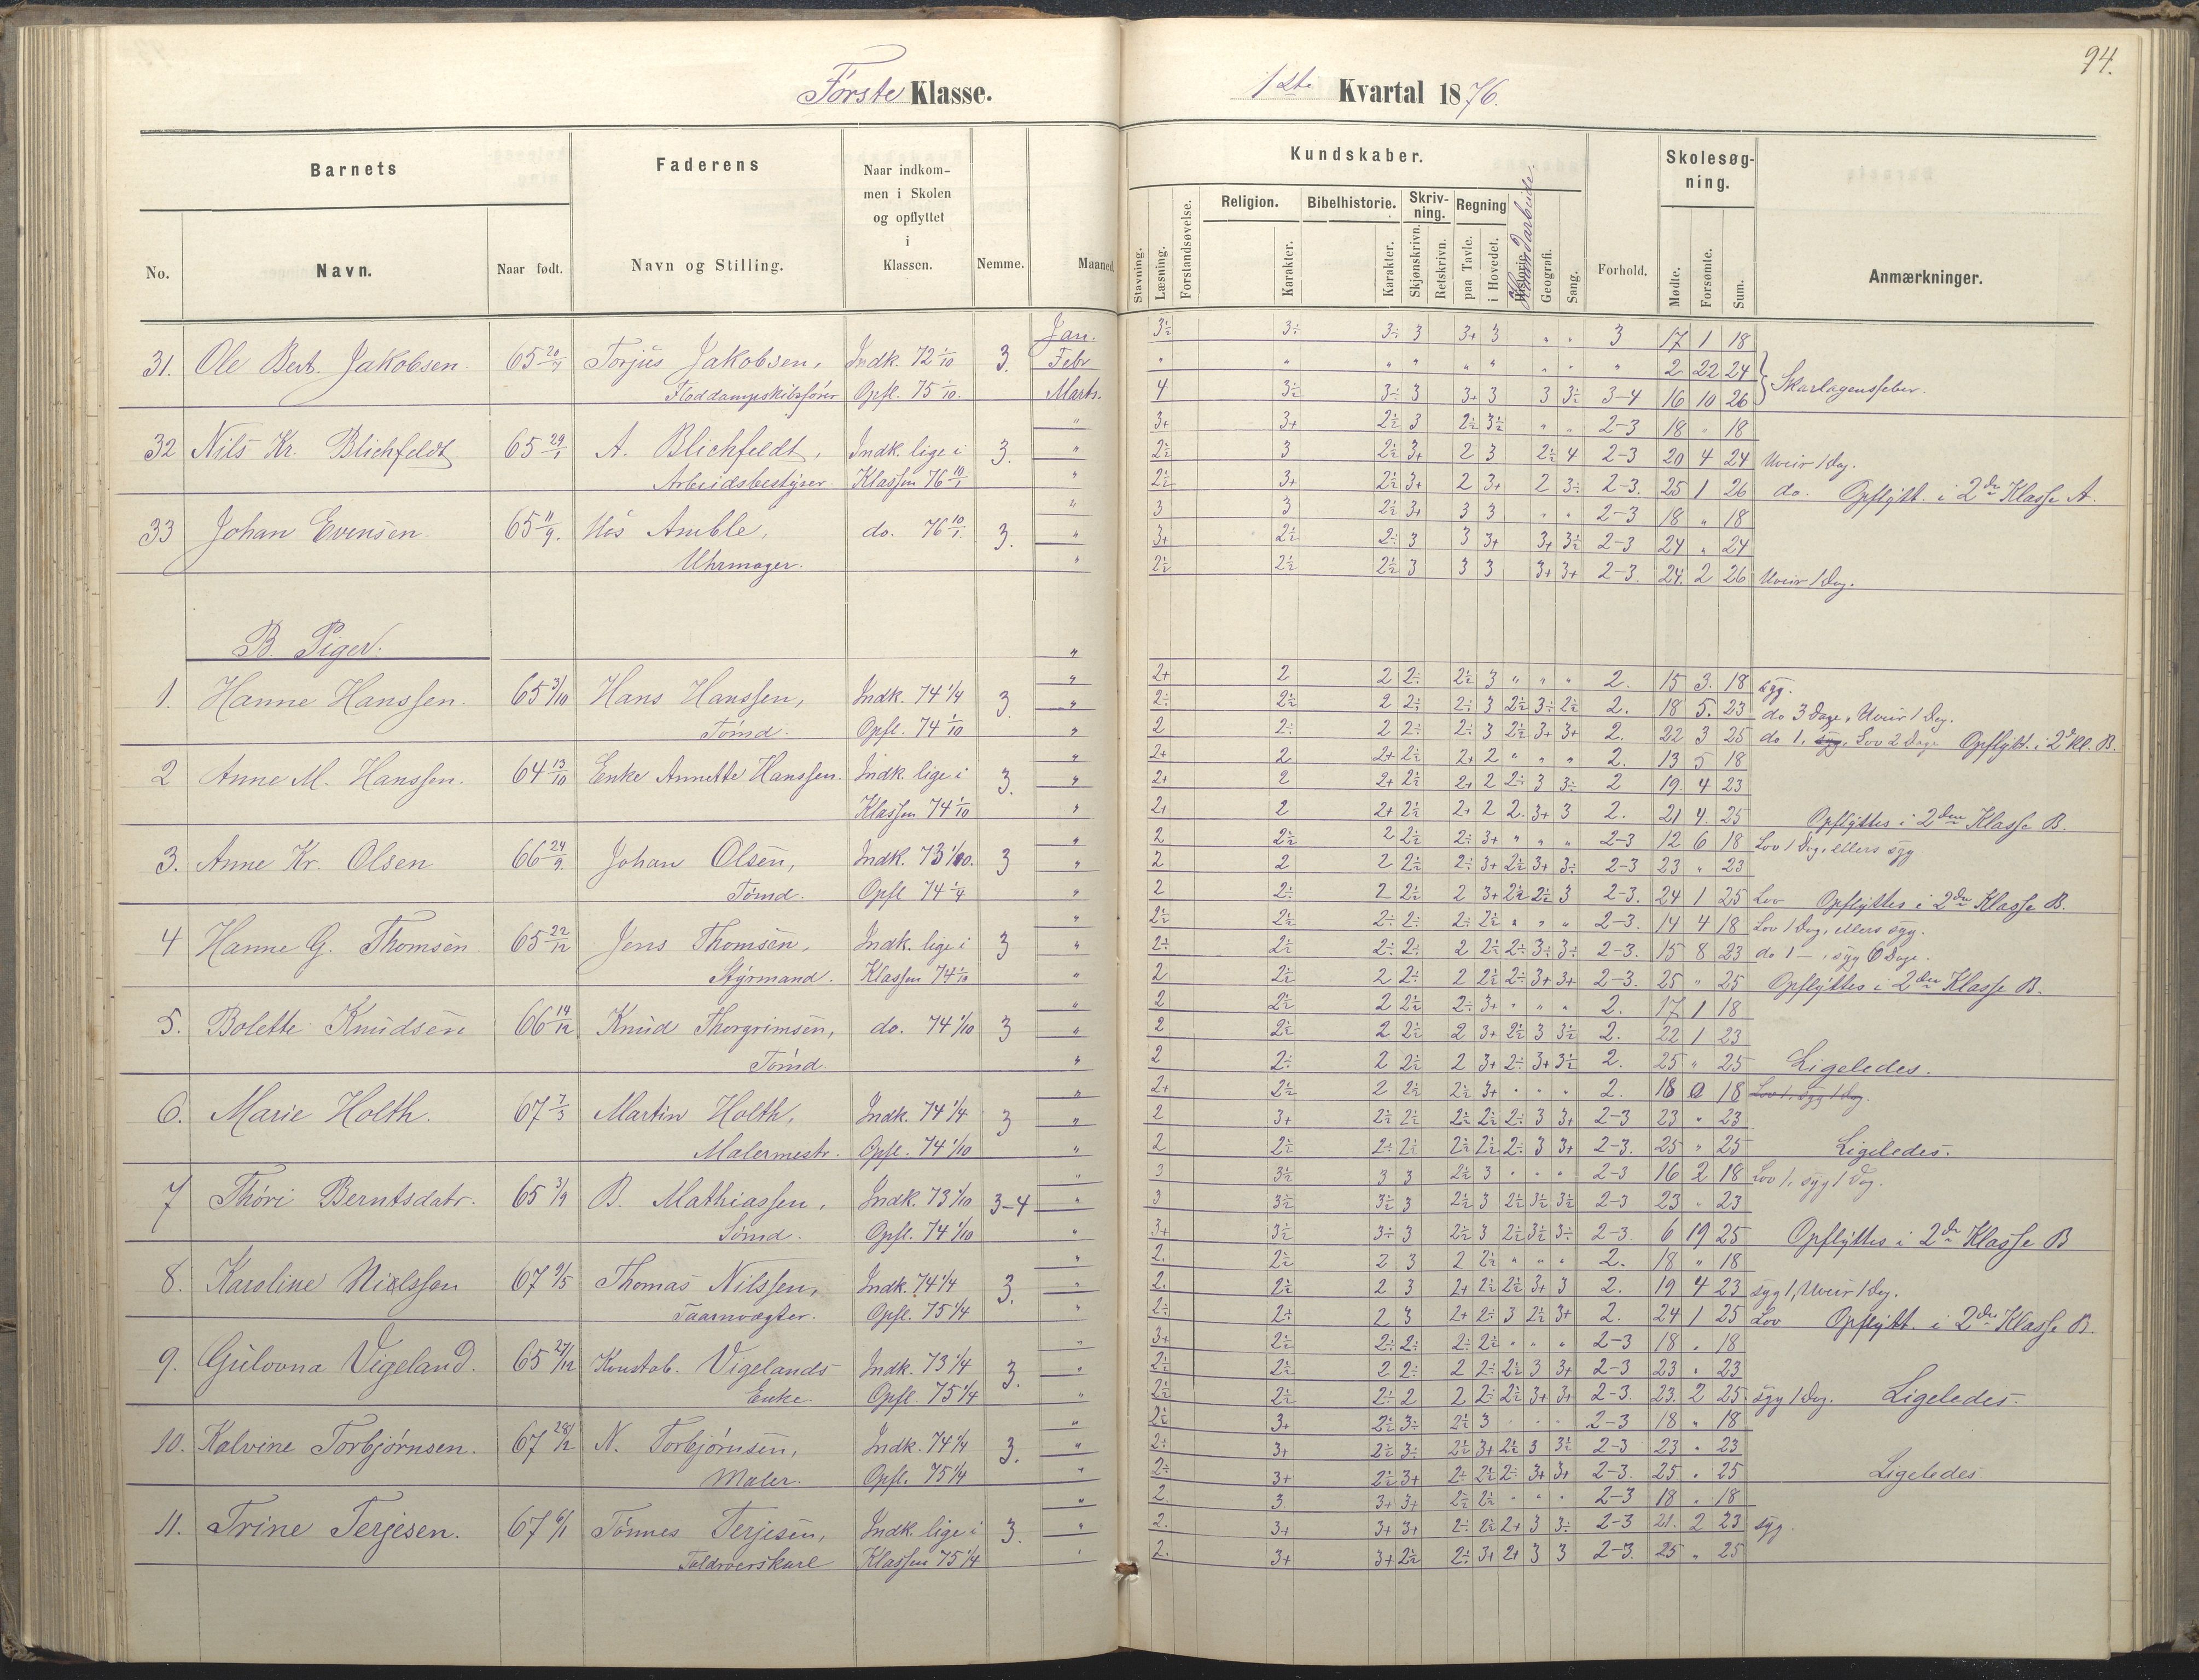 94.
Første Klasse.
1ste Kvartal 1876.
Barnets
Faderens
Naar indkom-
men i Skolen
og opflyttet
i
Klassen.
No.
Navn.
Naar født.
Navn og Stilling.
Nemme.
Maaned.
Kundskaber.
Skolesøg-
ning.
Religion.
Bibelhistorie.
Skriv-
ning.
Regning
Stavning.
Læsning.
Forstandsøvelse.
Karakter.
Karakter.
Skjønskrivn.
Retskrivn.
paa Tavle.
i Hovedet.
Historie.
Haandarbeide.
Geografi.
Sang.
Forhold.
Mødte.
Forsømte.
Sum.
Anmærkninger.
31. Ole Bert. Jakobsen. 65 20/7 Torjus Jakobsen, Indk. 72 1/10 3. Jan. 3½ 3÷ 3÷ 3 3+ 3 " " 3 17 1 18
Febr " " " " " " " " " 2 22 24
Floddampskibsfører Opfl. 75 1/10. Marts. 4 3½ 3÷ 3 3+ 3 3 3½ 3-4 16 10 26 Skarlagensfeber.
" 3+ 3+ 2½ 3 2½ 3½ " " 2-3 18 " 18
32 Nils Kr. Blichfeldt 65 29/1 A. Blichfeldt, Indk. lige i 3. " 2½ 3 2½ 3+ 2 3 2½ 4 2-3 20 4 24 Uveir 1 Dag.
Arbeidsbestyrer Klassen 76 10/1 " 2½ 3+ 2½ 3+ 2 3+ 2 3÷ 2-3. 25 1 26 do. Opflytt. i 2den Klasse A.
" 3 3 2½ 3+ 3 3 " " 2-3 18 " 18
33 Johan Evensen 65 11/9. Hos Amble, do. 76 10/1. 3. " 3+ 2½ 2÷ 3 3 3+ 3+ 3½ 2-3 24 " 24
Uhrmager. " 2½ 2½ 2½ 3 3 3 3+ 3+ 2-3. 24. 2 26 Uveir 1 Dag.
B. Piger.
" 2+ 2 2 2÷ 2½ 3 " " " 2. 15 3. 18 syg.
1. Hanne Hanssen. 65 3/10 Hans Hanssen, Indk. 74 1/4 3 " 2÷ 2½ 2 2÷ 2÷ 3 2½ 3÷ 2½ 2. 18 5. 23 do 3 Dage, Uveir 1 Dag.
Tømd. Opfl. 74 1/10 " 2 2÷ 2 2÷ 2÷ 3 2½ 3+ 3+ 2. 22 3 25 do 1, syg, Lov 2 Dage Opflytt. i 2d Kl. B.
" 2+ 2 2+ 2½ 2+ 2 " " " 2. 13 5 18
2 Anne M. Hanssen. 64 13/10 Enke Annette Hanssen. Indk. lige i 3. " 2+ 2 2+ 2½ 2+ 2 2÷ 3 3÷ 2 19 4 23
Klassen 74 1/10 " 2+ 2 2+ 2½ 2+ 2 2. 3+ 3 2. 21 4. 25 Opflyttes i 2den Klasse B.
" 2 2½ 2 2½ 2÷ 3+ " " " 2-3 12 6 18 Lov 1 Dag, ellers syg
3. Anne Kr. Olsen 66 24/9. Johan Olsen, Indk. 73 1/10. 3 " 2 2 2 2½ 2÷ 3+ 2½ 3+ 3÷ 2-3 23 " 23
Tømd. Opfl 74 1/4 " 2 2÷ 2 2½ 2 3+ 2½ 2½ 3 2-3. 24 1 25 Lov Opflyttes i 2den Klasse B.
" 2½ 2½ 2÷ 2÷ 2÷ 2½ " " " 2-3. 14 4 18 Lov 1 Dag, ellers syg.
4 Hanne G. Thomsen 65 22/12 Jens Thomsen, Indk. lige i 3 " 2÷ 2½ 2÷ 2÷ 2 2½ 2÷ 3÷ 3÷ 2-3. 15 8 23 do 1 —, syg 6 Dage.
Styrmand. Klassen 74 1/10 " 2 2½ 2 2÷ 2 2½ 2÷ 3+ 3+ 2-3. 25 " 25 Opflyttes i 2den Klasse B.
" 2 2½ 2 2½ 2÷ 3+ " " " 2. 17 1 18
5. Bolette Knudsen 66 14/12 Knud Thorgrimsen, do. 74 1/10 3 " 2 2½ 2 2½ 2 3+ 2½ 3 3½ 2. 22 1 23
Tømd. " 2 2÷ 2 2½ 2 3+ 2÷ 3+ 3½ 2. 25 " 25 Ligeledes.
" 2+ 2½ 2 2½ 2½ 3+ " " " 2. 18 0 18 Lov 1, syg 1 Dag.
6. Marie Holth. 67 7/3 Martin Holth, Indk. 74 1/4 3 " 2 3+ 2½ 2½ 2½ 2½ 2÷ 3 3+ 2-3 23 " 23
Malermestr. Opfl. 74 1/10 " 2 2½ 2÷ 2½ 2½ 2½ 2÷ 3 3+ 2-3. 25 " 25 Ligeledes.
" 3 3½ 3 3 2½ 3 " " " 2-3 16 2 18 Lov 1, syg 1 Dag.
7 Thøri Berntsdatr. 65 3/9 B. Mathiassen, Indk. 73 1/10 3-4 " 3 3½ 3½ 3 2½ 3 2½ 3½ 3½ 2-3 23 " 23
Sømd. Opfl. 74 1/10 " 3+ 3½ 3÷ 3 2½ 3 2½ 3½ 3÷ 2-3. 6 19 25 Opflyttes i 2den Klasse B
" 2. 2½ 2 3 2 2½ " " " 2. 18 " 18
8. Karoline Nielssen 67 9/5 Thomas Nilssen, Indk. 74 1/4 3. " 2. 2½ 2 3 2+ 2½ 2½ 3+ 3 2. 19 4 23 syg 1, Uveir 1 Dag.
Taarnvægter. Opfl. 75 1/4 " 2÷ 2÷ 2 3 2+ 2÷ 3 2½ 3+ 2. 24 1 25 Lov Opflytt. i 2den Klasse B.
" 3+ 2½ 2÷ 2÷ 2÷ 2½ " " " 2-3 18 " 18
9. Gulovna Vigeland. 65 27/12 Konstab. Vigelands Indk. 73 1/4 3. " 2½ 2½ 2 2÷ 2 2÷ 2½ 3 3+ 2-3 23 " 23
Enke. Opfl. 75 1/4 " 2½ 2½ 2÷ 2 2 2÷ 2½ 3+ 3+ 2-3. 23. 2 25 syg 1 Dag. Ligeledes.
" 2½ 3+ 2½ 3÷ 2½ 3 " " " 2-3 18 " 18
10. Kalvine Torbjørnsen. 67 28/2 N. Torbjørnsen, Indk. 74 1/4 3. " 2÷ 3+ 2½ 3÷ 2½ 3+ 2½ 3 3½ 2-3 23 " 23
Maler. Opfl. 75 1/4 " 2÷ 3+ 2½ 3+ 2÷ 2½ 2÷ 3+ 3+ 2-3. 25 " 25 Ligeledes
" 2. 3 3+ 3+ 2½ 2½ " " " 2-3 18 " 18
11. Trine Terjesen. 67 6/1 Tønnes Terjesen, Indk. lige i 3. " 2. 3+ 3+ 3+ 2÷ 2½ 2+ 3 3÷ 2-3 21. 2 23 syg.
Toldroerskarl Klassen 75 1/4 " 2. 3+ 3+ 2½ 2÷ 3+ 2+ 3 3 2-3. 25 " 25